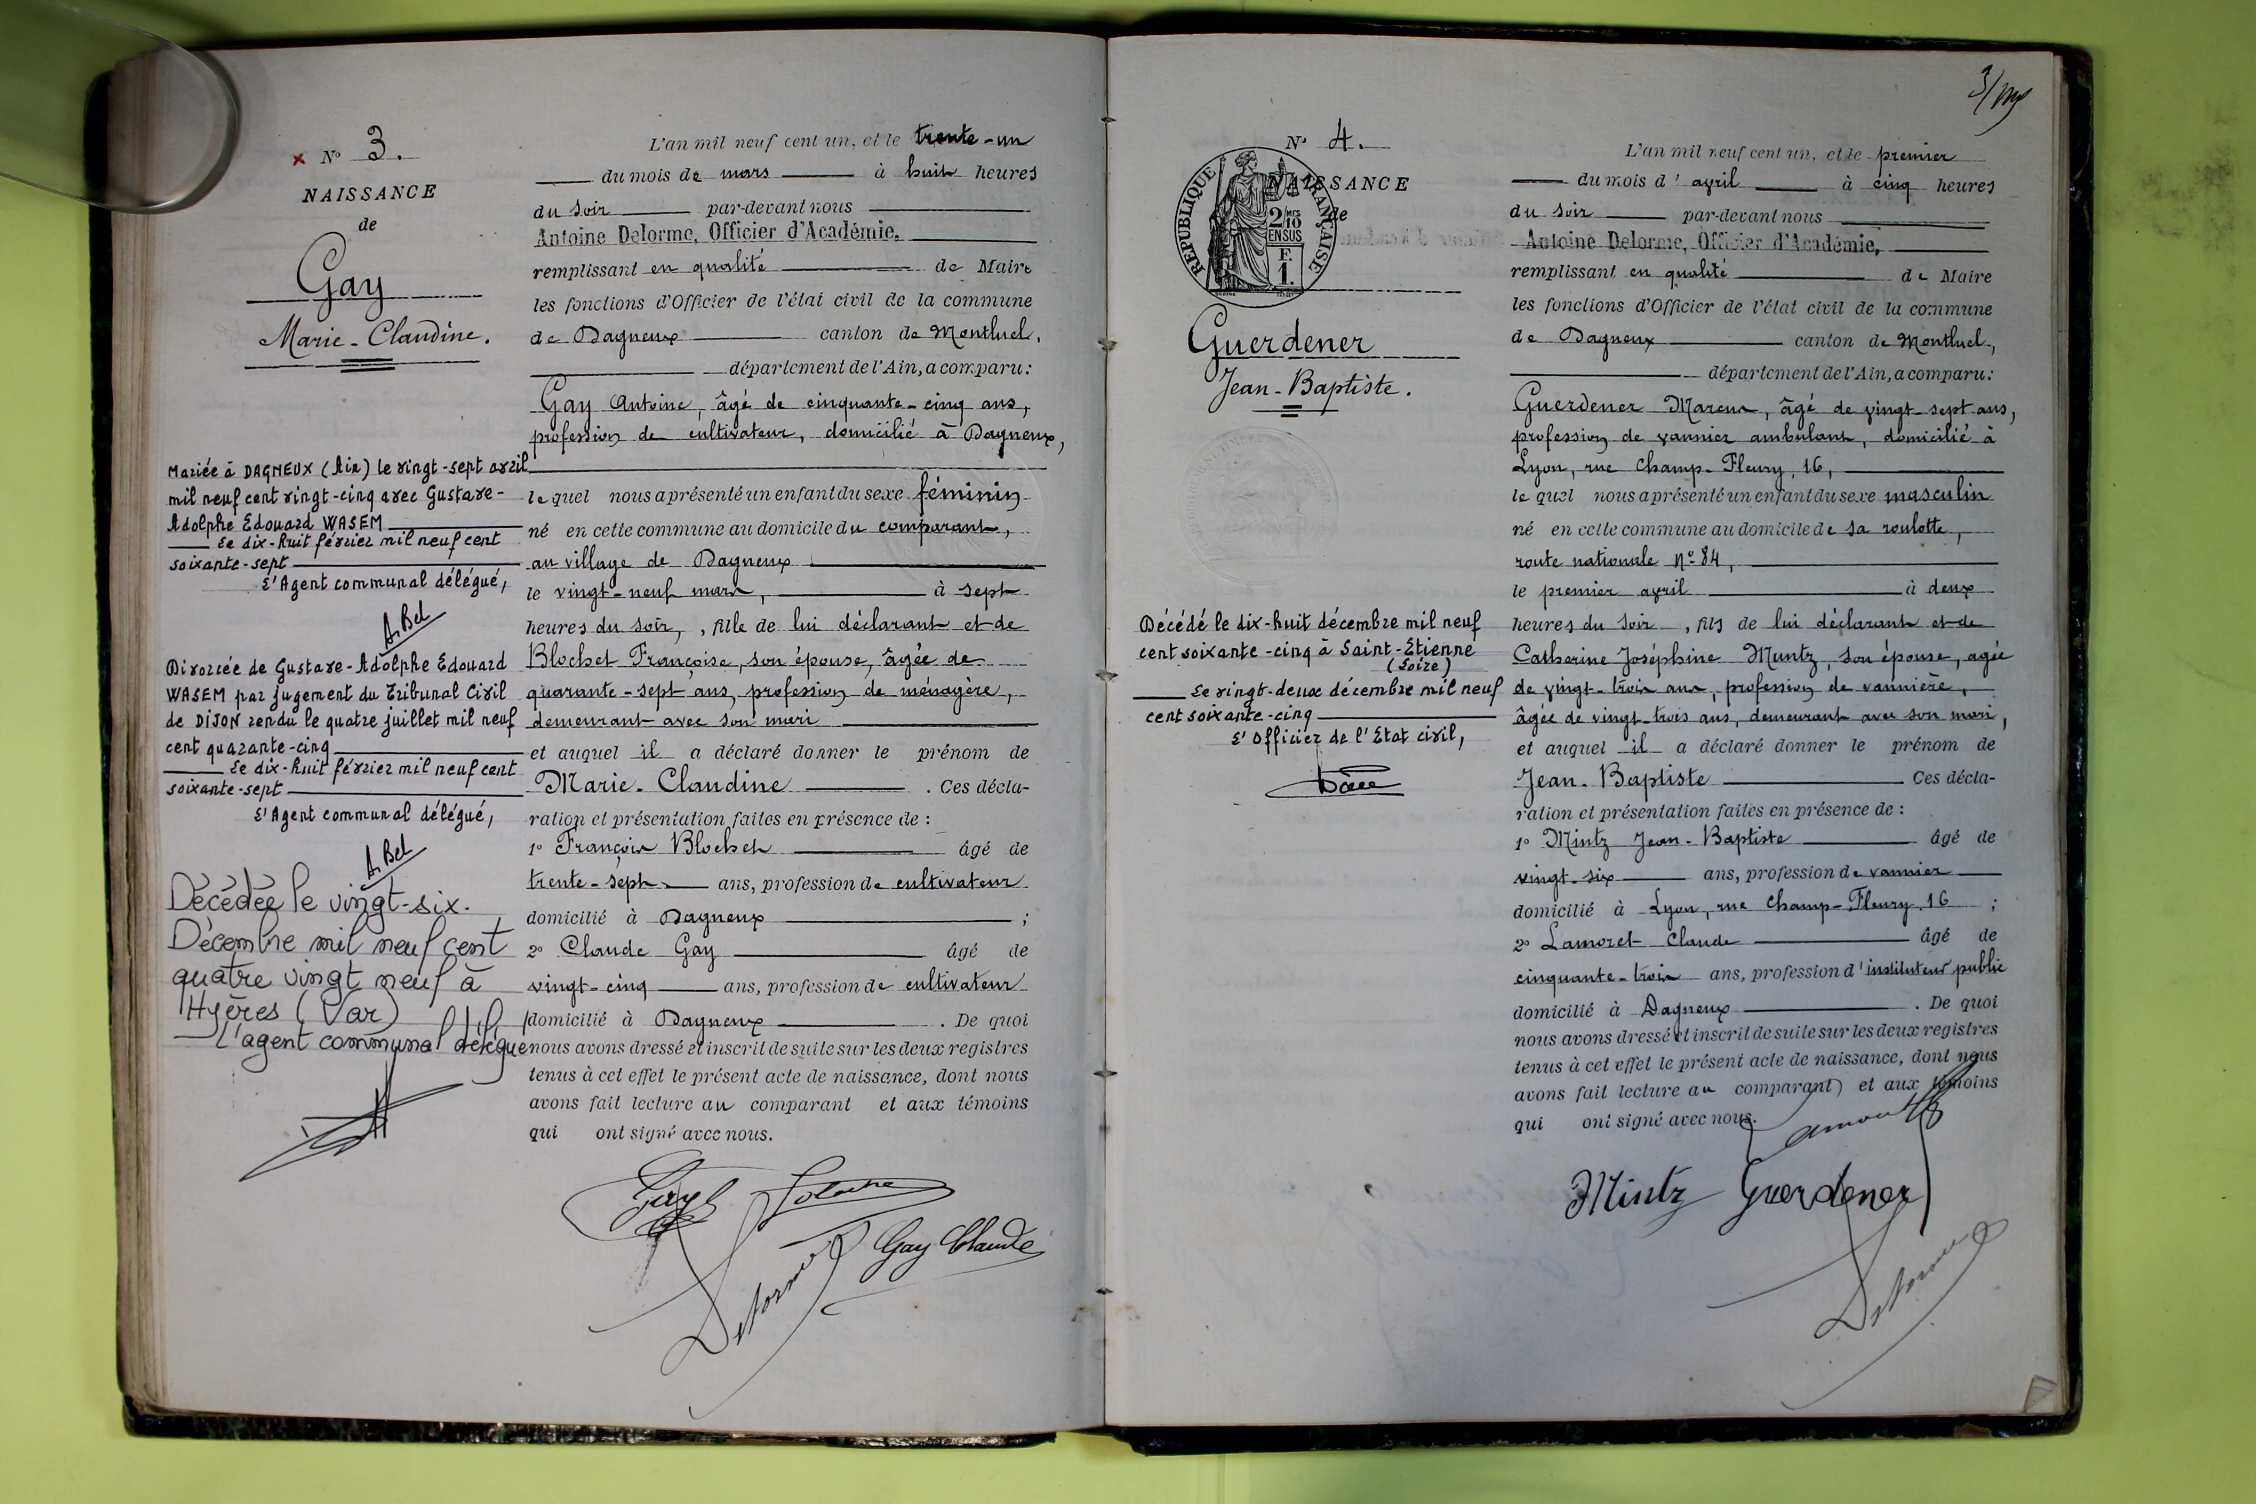 × No 3.
NAISSANCE
de
Gay
Marie-Claudine.
Mariée à DAGNEUX (Ain) le vingt-sept avril
mil neuf cent vingt-cinq avec Gustave-
Adolphe Edouard WASEM
Le dix-huit février mil neuf cent
soixante-sept
L'Agent communal délégué,
A. Bel
Divorcée de Gustave-Adolphe Edouard
WASEM par jugement du Tribunal Civil
de DIJON rendu le quatre juillet mil neuf
cent quarante-cinq
Le dix-huit février mil neuf cent
soixante-sept
L'Agent communal délégué,
A. Bel
Décédée le vingt-six.
Décembre mil neuf cent
quatre vingt neuf à
Hyères (Var)
L'agent communal délégué
L'an mil neuf cent un, et le trente-un
du mois de mars à huit heures
du soir par-devant nous
Antoine Delorme, Officier d'Académie,
remplissant en qualité de Maire
les fonctions d'Officier de l'état civil de la commune
de Dagneux canton de Montluel,
département de l'Ain, a comparu:
Gay Antoine, âgé de cinquante-cinq ans,
profession de cultivateur, domicilié à Dagneux,
lequel nous a présenté un enfant du sexe féminin
né en cette commune au domicile du comparant,
au village de Dagneux
le vingt-neuf mars, à sept
heures du soir, , fille de lui déclarant et de
Blochet Françoise, son épouse, âgée de
quarante-sept ans, profession de ménagère,
demeurant avec son mari
et auquel il a déclaré donner le prénom de
Marie-Claudine . Ces décla-
ration et présentation faites en présence de :
1o François Blochet âgé de
trente-sept ans, profession de cultivateur
domicilié à Dagneux ;
2o Claude Gay âgé de
vingt-cinq ans, profession de cultivateur
domicilié à Dagneux . De quoi
nous avons dressé et inscrit de suite sur les deux registres
tenus à cet effet le présent acte de naissance, dont nous
avons fait lecture au comparant et aux témoins
qui ont signé avec nous.
Gay
Gay Claude
Delorme
3/
No 4.
NAISSANCE
de
RÉPUBLIQUE FRANÇAISE
2/10 EN SUS
F.
1.
Guerdener
Jean-Baptiste.
Décédé le dix-huit décembre mil neuf
cent soixante-cinq à Saint-Etienne
(Loire)
Le vingt-deux décembre mil neuf
cent soixante-cinq
L'Officier de l'Etat civil,
L'an mil neuf cent un, et le premier
du mois d'avril à cinq heures
du soir par-devant nous
Antoine Delorme, Officier d'Académie,
remplissant en qualité de Maire
les fonctions d'Officier de l'état civil de la commune
de Dagneux canton de Montluel,
département de l'Ain, a comparu:
Guerdener Marcus, âgé de vingt-sept ans,
profession de vannier ambulant, domicilié à
Lyon, rue Champ-Fleury, 16,
lequel nous a présenté un enfant du sexe masculin
né en cette commune au domicile de sa roulotte,
route nationale No 84,
le premier avril à deux
heures du soir , fils de lui déclarant et de
Catherine Joséphine Muntz, son épouse, agée
de vingt-trois ans, profession de vannière,
âgée de vingt-trois ans, demeurant avec son mari,
et auquel il a déclaré donner le prénom de
Jean-Baptiste Ces décla-
ration et présentation faites en présence de :
1o Mintz Jean-Baptiste âgé de
vingt-six ans, profession de vannier
domicilié à Lyon, rue Champ-Fleury 16 ;
2o Lamoret Claude âgé de
cinquante-trois ans, profession d'instituteur public
domicilié à Dagneux . De quoi
nous avons dressé et inscrit de suite sur les deux registres
tenus à cet effet le présent acte de naissance, dont nous
avons fait lecture au comparant et aux témoins
qui ont signé avec nous.
Mintz Guerdener
Delorme